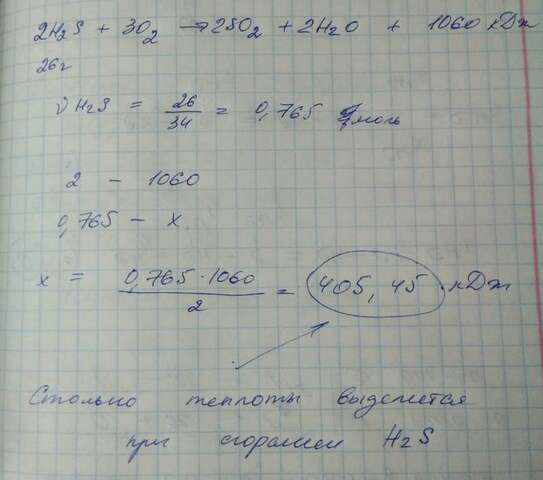 2H₂S + 3O₂ → 2SO₂ + 2H₂O + 1060 кДж
26г
ν H₂S = 26/34 = 0,765 моль
2 – 1060
0,765 – x
x = 0,765·1060/2 = 405,45 кДж
Столько теплоты выделется
при сгорании H₂S